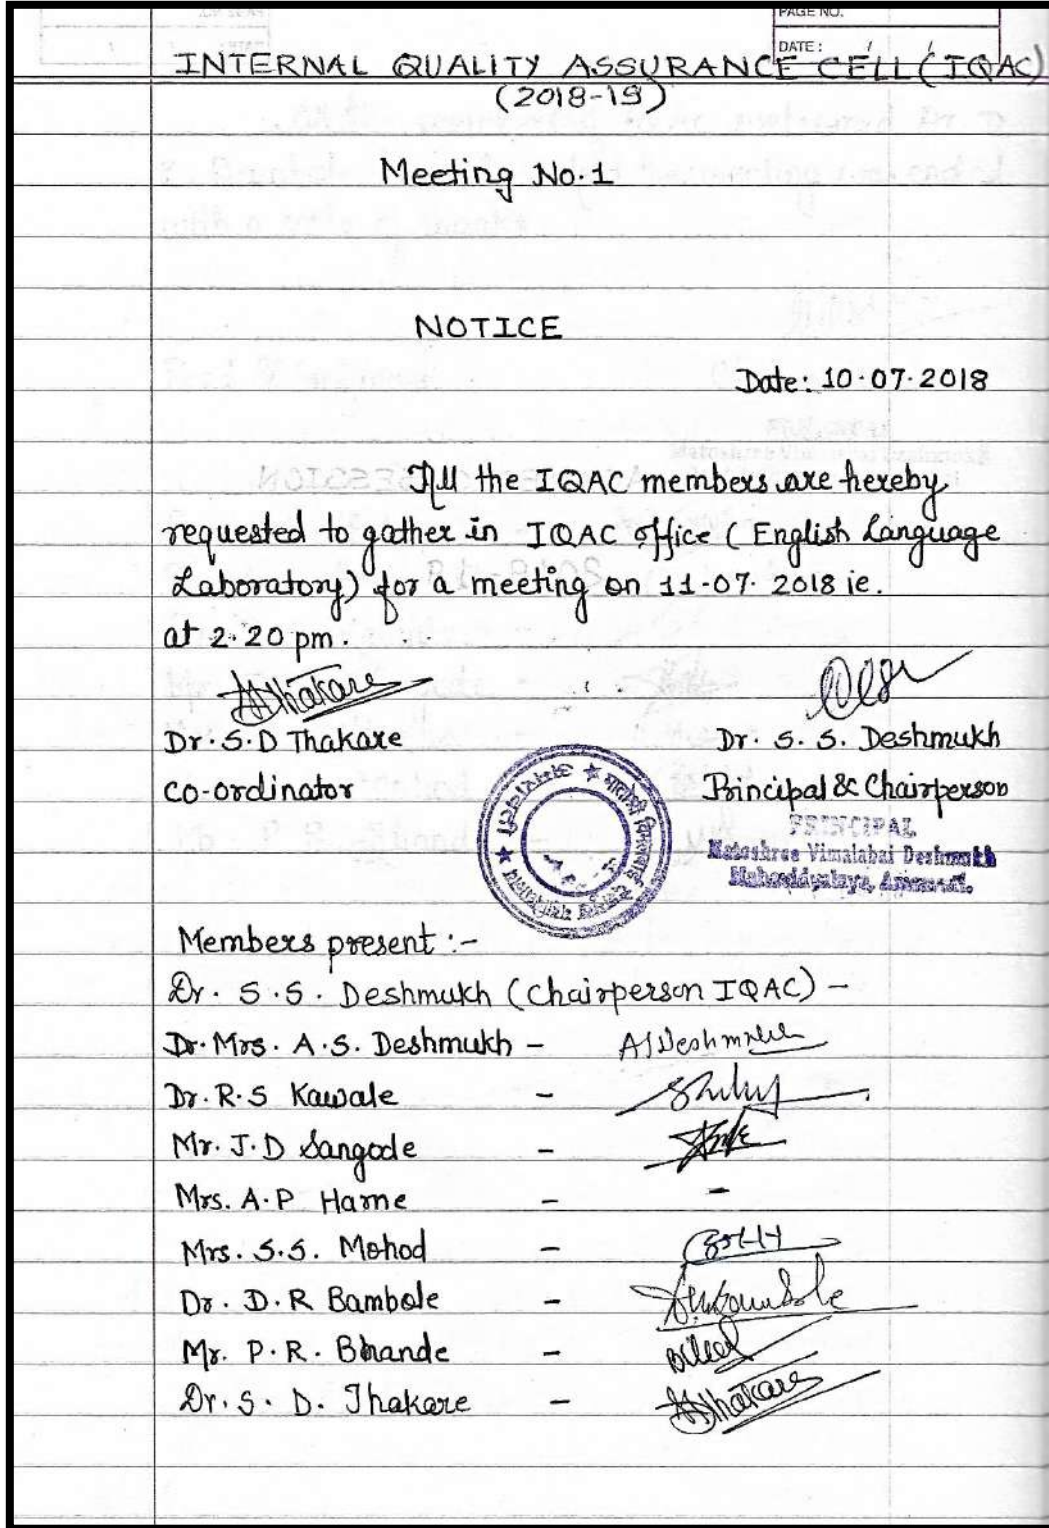 PAGE NO.
DATE: / /
INTERNAL QUALITY ASSURANCE CELL (IQAC)
(2018-19)
Meeting No.1
NOTICE
Date: 10.07.2018
All the IQAC members are hereby
requested to gather in IQAC office (English Language
Laboratory) for a meeting on 11-07.2018 ie.
at 2.20 pm.
Thakare
Dr. S.D Thakare
Dr. S. S. Deshmukh
co-ordinator
Principal & Chairperson
PRINCIPAL
Matoshree Vimalabai Deshmukh
Mahavidyalaya, Amravati.
Members present :-
Dr. S.S. Deshmukh (Chairperson IQAC) -
Dr. Mrs. A.S. Deshmukh - ASDeshmukh
Dr. R.S Kawale -
Mr. J.D Sangode -
Mrs. A.P Harne - -
Mrs. S.S. Mohod -
Dr. D.R Bambole -
Mr. P.R. Bhande -
Dr. S. D. Thakare - Thakare